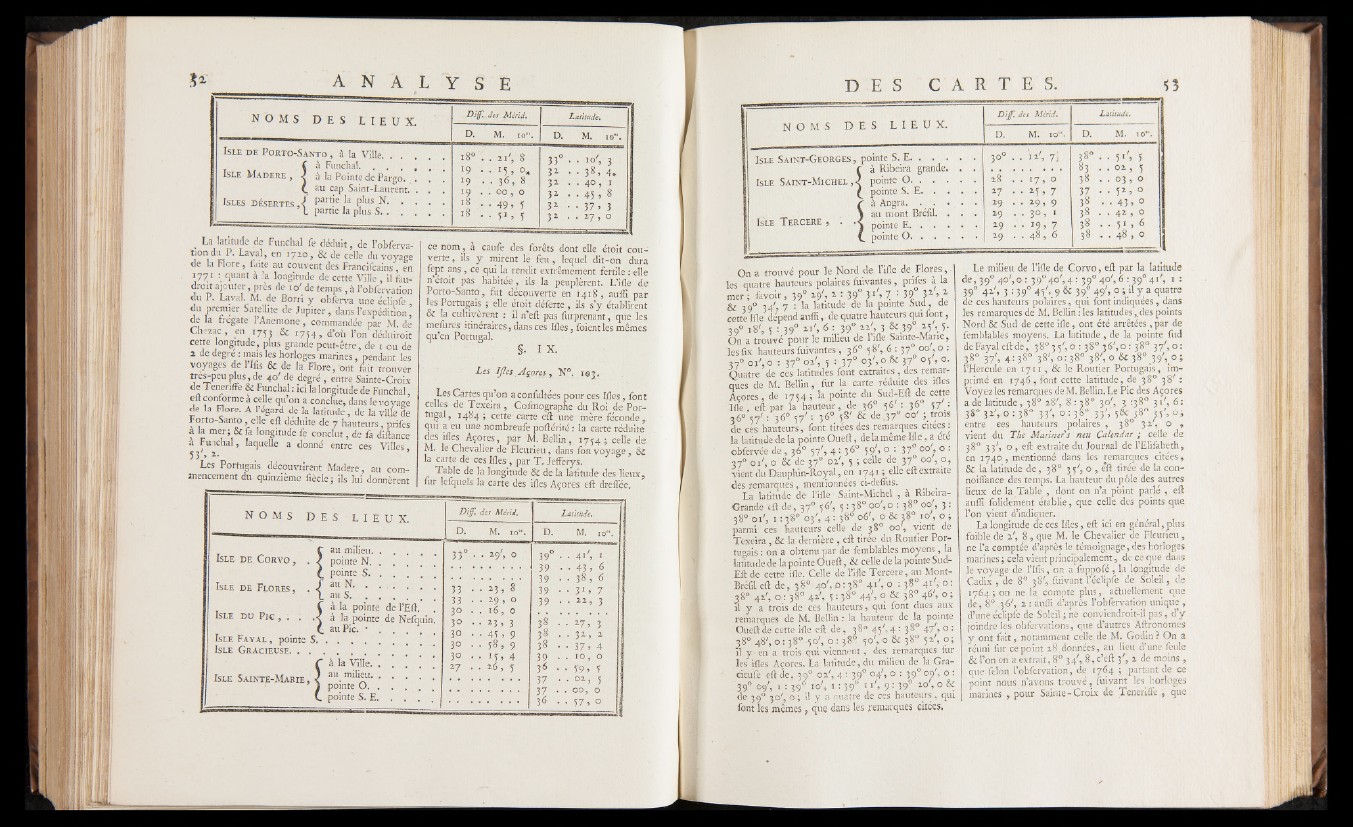 52 ANALYSE
NOMS DES LIEUX. Diff. des Mérid. Latitude.
D. M. 10es. D. M. 10es.
ISLE DE PORTO-SANTO, à la Ville. . . . . . 18° . . 21', 8 33° . . 10', 3
ISLE MADERE, { à Funchal. . . . . . 19 . . 15, 0. 32 . . 38, 4.
à la Pointe de Pargo. . . . 19 . . 36, 8 32 . . 40, 1
au cap Saint-Laurent. . . . 19 . . 00, 0 32 . . 45, 8
ISLES DÉSERTES, { partie la plus N. . . . . 18 . . 49, 5 32 . . 37, 3
partie la plus S. . . . . . 18 . . 51, 5 32 . . 27, 0
La latitude de Funchal se déduit, de l'observa-
tion du P. Laval, en 1720, & de celle du voyage
de la Flore, faite au couvent des Franciscains, en
1771 : quant à la longitude de cette Ville, il fau-
droit ajouter, près de 10' de temps, à l'observation
du P. Laval. M. de Borri y observa une éclipse,
du premier Satellite de Jupiter, dans l'expédition,
de la frégate l'Anemone, commandée par M. de
Chezac, en 1753 & 1754, d'où l'on déduiroit
cette longitude, plus grande peut-être, de 1 ou de
2 de degré : mais les horloges marines, pendant les
voyages de l'Isis & de la Flore, ont fait trouver
très-peu plus, de 40' de degré, entre Sainte-Croix
de Teneriffe & Funchal : ici la longitude de Funchal,
est conforme à celle qu'on a conclue, dans le voyage
de la Flore. A l'égard de la latitude, de la ville de
Porto-Santo, elle est déduite de 7 hauteurs, prises
à la mer ; & sa longitude se conclut, de sa distance
à Funchal, laquelle a donné entre ces Villes,
53', 2.
Les Portugais découvrirent Madere, au com-
mencement du quinzième siècle ; ils lui donnèrent
ce nom, à cause des forêts dont elle étoit cou-
verte, ils y mirent le feu, lequel dit-on dura
sept ans, ce qui la rendit extrêmement fertile : elle
n'étoit pas habitée, ils la peuplèrent. L'isle de
Porto-Santo, fut découverte en 1418, aussi par
les Portugais ; elle étoit déserte, ils s'y établirent
& la cultivèrent : il n'est pas surprenant, que les
mesures itinéraires, dans ces Isles, soient les mêmes
qu'en Portugal.
§. IX.
Les Isles Açores, N°. 103.
Les Cartes qu'on a consultées pour ces Isles, sont
celles de Texeira, Cosmographe du Roi de Por-
tugal, 1484 ; cette carte est une mère féconde,
qui a eu une nombreuse postérité : la carte réduite
des isles Açores, par M. Bellin, 1754 ; celle de
M. le Chevalier de Fleurieu, dans son voyage, &
la carte de ces Isles, par T. Jefferys.
Table de la longitude & de la latitude des lieux,
sur lesquels la carte des isles Açores est dressée.
NOMS DES LIEUX. Diff. des Mérid. Latitude.
D. M. 10es. D. M. 10es.
ISLE DE CORVO, . . { au milieu. . . . . . 33° . . 29', 0 39° . . 41', 1
pointe N. . . . . . . . . . . . . . . 39 . . 43, 6
pointe S. . . . . . . . . . . . . . . 39 . . 38, 6
ISLE DE FLORES, . { au N. . . . . . . 33 . . 23, 8 39 . . 31, 7
au S. . . . . . . 33 . . 29, 0 39 . . 22, 3
ISLE DU PIC, . . . { à la pointe de l'Est. . . 30 . . 16, 0 . . . . . . . .
à la pointe de Nesquin. 30 . . 23, 3 38 . . 27, 3
au Pic. . . . . . . 30 . . 45, 9 38 . . 32, 2
ISLE FAYAL, pointe S. . . . . . . . 30 . . 58, 9 38 . . 37, 4
ISLE GRACIEUSE. . . . . . . . . . 30 . . 15, 4 39 . . 10, 0
ISLE SAINTE-MARIE, { à la Ville. . . . . . 27 . . 26, 5 36 . . 59, 5
au milieu. . . . . . . . . . . . . . . 37 . . 02, 5
pointe O. . . . . . . . . . . . . . . 37 . . 00, 0
pointe S. E. . . . . . . . . . . . . . 36 . . 57, 0
DES CARTES. 53
NOMS DES LIEUX. Diff. des Mérid. Latitude.
D. M. 10es. D. M. 10es.
ISLE SAINT-GEORGES, pointe S. E. . . . . . 30° . . 12', 7 38° . . 51', 5
ISLE SAINT-MICHEL, { à Ribeira grande. . . . . . . . . . . 83 . . 02, 5
pointe O. . . . . . 28 . . 17, 0 38 . . 03, 0
pointe S. E. . . . . 27 . . 25, 7 37 . . 52, 0
ISLE TERCERE, . . { à Angra. . . . . . 29 . . 29, 9 38 . . 43, 0
au mont Brésil. . . . 29 . . 30, 1 38 . . 42, 0
pointe E. . . . . . 29 . . 19, 7 38 . . 51, 6
pointe O. . . . . . 29 . . 48, 6 38 . . 48, 0
On a trouvé pour le Nord de l'isle de Flores,
les quatre hauteurs polaires suivantes, prises à la
mer ; savoir, 39° 29', 2 : 39° 31', 7 : 39° 32', 2
& 39° 34', 7 : la latitude de la pointe Sud, de
cette Isle dépend aussi, de quatre hauteurs qui sont,
39° 18', 5 : 39° 21', 6 : 39° 22', 3 & 39° 25', 5.
On a trouvé pour le milieu de l'isle Sainte-Marie,
les six hauteurs suivantes, 36° 58', 6 : 37° 00', 0 :
37° 01', 0 : 37° 02', 5 : 37° 03', 0 & 37° 05', 0.
Quatre de ces latitudes sont extraites, des remar-
ques de M. Bellin, sur la carte réduite des isles
Açores, de 1754 ; la pointe du Sud-Est de cette
Isle, est par la hauteur, de 36° 56' : 36° 57' :
36° 57' : 36° 57' : 36° 58' & de 37° 00' ; trois
de ces hauteurs, sont tirées des remarques citées :
la latitude de la pointe Ouest, de la même Isle, a été
observée de, 36° 57', 4 : 36° 59', 0 : 37° 00', 0 :
37° 01', 0 & de 37° 02', 5 ; celle de 37° 00', 0,
vient du Dauphin-Royal, en 1741 ; elle est extraite
des remarques, mentionnées ci-dessus.
La latitude de l'isle Saint-Michel, à Ribeira-
Grande est de, 37° 56', 5 : 38° 00', 0 : 38° 00', 3 :
38° 01', 1 : 38° 03', 4 : 38° 06', 0 & 38° 10', 0 ;
parmi ces hauteurs celle de 38° 00', vient de
Texeira, & la dernière, est tirée du Routier Por-
tugais : on a obtenu par de semblables moyens, la
latitude de la pointe Ouest, & celle de la pointe Sud-
Est de cette isle. Celle de l'isle Tercere, au Mont-
Brésil est de, 38° 40', 0 : 38° 41', 0 : 38° 41', 0 :
38° 42', 0 : 38° 42', 5 : 38° 44', 0 & 38° 46', 0 ;
il y a trois de ces hauteurs, qui sont dues aux
remarques de M. Bellin : la hauteur de la pointe
Ouest de cette isle est de, 38° 45', 4 : 38° 47', 0 :
38° 48', 0 : 38° 50', 0 : 38° 50', 0 & 38° 52', 0 ;
il y en a trois qui viennent, des remarques sur
les isles Açores. La latitude, du milieu de la Gra-
cieuse est de, 39° 02', 4 : 39° 04', 0 : 39° 09', 0 :
39° 09', 1 : 39° 10', 1 : 39° 11', 9 : 39° 20', 0 &
de 39° 30', 0 ; il y a quatre de ces hauteurs, qui
sont les mêmes, que dans les remarques citées.
Le milieu de l'isle de Corvo, est par la latitude
de, 39° 40', 0 : 39° 40', 4 : 39° 40', 6 : 39° 41', 1 :
39° 42', 3 : 39° 45', 9 & 39° 49', 0 ; il y a quatre
de ces hauteurs polaires, qui sont indiquées, dans
les remarques de M. Bellin : les latitudes, des points
Nord & Sud de cette isle, ont été arrêtées, par de
semblables moyens. La latitude, de la pointe sud
de Fayal est de, 38° 35', 0 : 38° 36', 0 : 38° 37', 0 :
38° 37', 4 : 38° 38', 0 : 38° 38', 0 & 38° 39', 0 ;
l'Hercule en 1711, & le Routier Portugais, im-
primé en 1746, font cette latitude, de 38° 38' :
Voyez les remarques de M. Bellin. Le Pic des Açores
a de latitude, 38° 28', 8 : 38° 30', 3 : 38° 31', 6 :
38° 32', 0 : 38° 33', 0 : 38° 33', 5 & 38° 35', 0 ;
entre ces hauteurs polaires, 38° 32', 0,
vient du The Mariner's neu Calendar ; celle de
38° 33', 0, est extraite du Journal de l'Elisabeth,
en 1740, mentionné dans les remarques citées,
& la latitude de, 38° 35', 0, est tirée de la con-
noissance des temps. La hauteur du pôle des autres
lieux de la Table, dont on n'a point parlé, est
aussi solidement établie, que celle des points que
l'on vient d'indiquer.
La longitude de ces Isles, est ici en général, plus
foible de 2', 8, que M. le Chevalier de Fleurieu,
ne l'a comptée d'après le témoignage, des horloges
marines ; cela vient principalement, de ce que dans
le voyage de l'Isis, on a supposé, la longitude de
Cadix, de 8° 38', suivant l'éclipse de Soleil, de
1764 ; on ne la compte plus, actuellement que
de, 8° 36', 2 : aussi d'après l'observation unique,
d'une éclipse de Soleil ; ne conviendroit-il pas, d'y
joindre les observations, que d'autres Astronomes
y ont fait, notamment celle de M. Godin ? On a
réuni sur ce point 28 données, au lieu d'une seule
& l'on en a extrait, 8° 34', 8, c'est 3', 2 de moins,
que selon l'observation, de 1764 ; partant de ce
point nous n'avons trouvé, suivant les horloges
marines, pour Sainte-Croix de Teneriffe, que